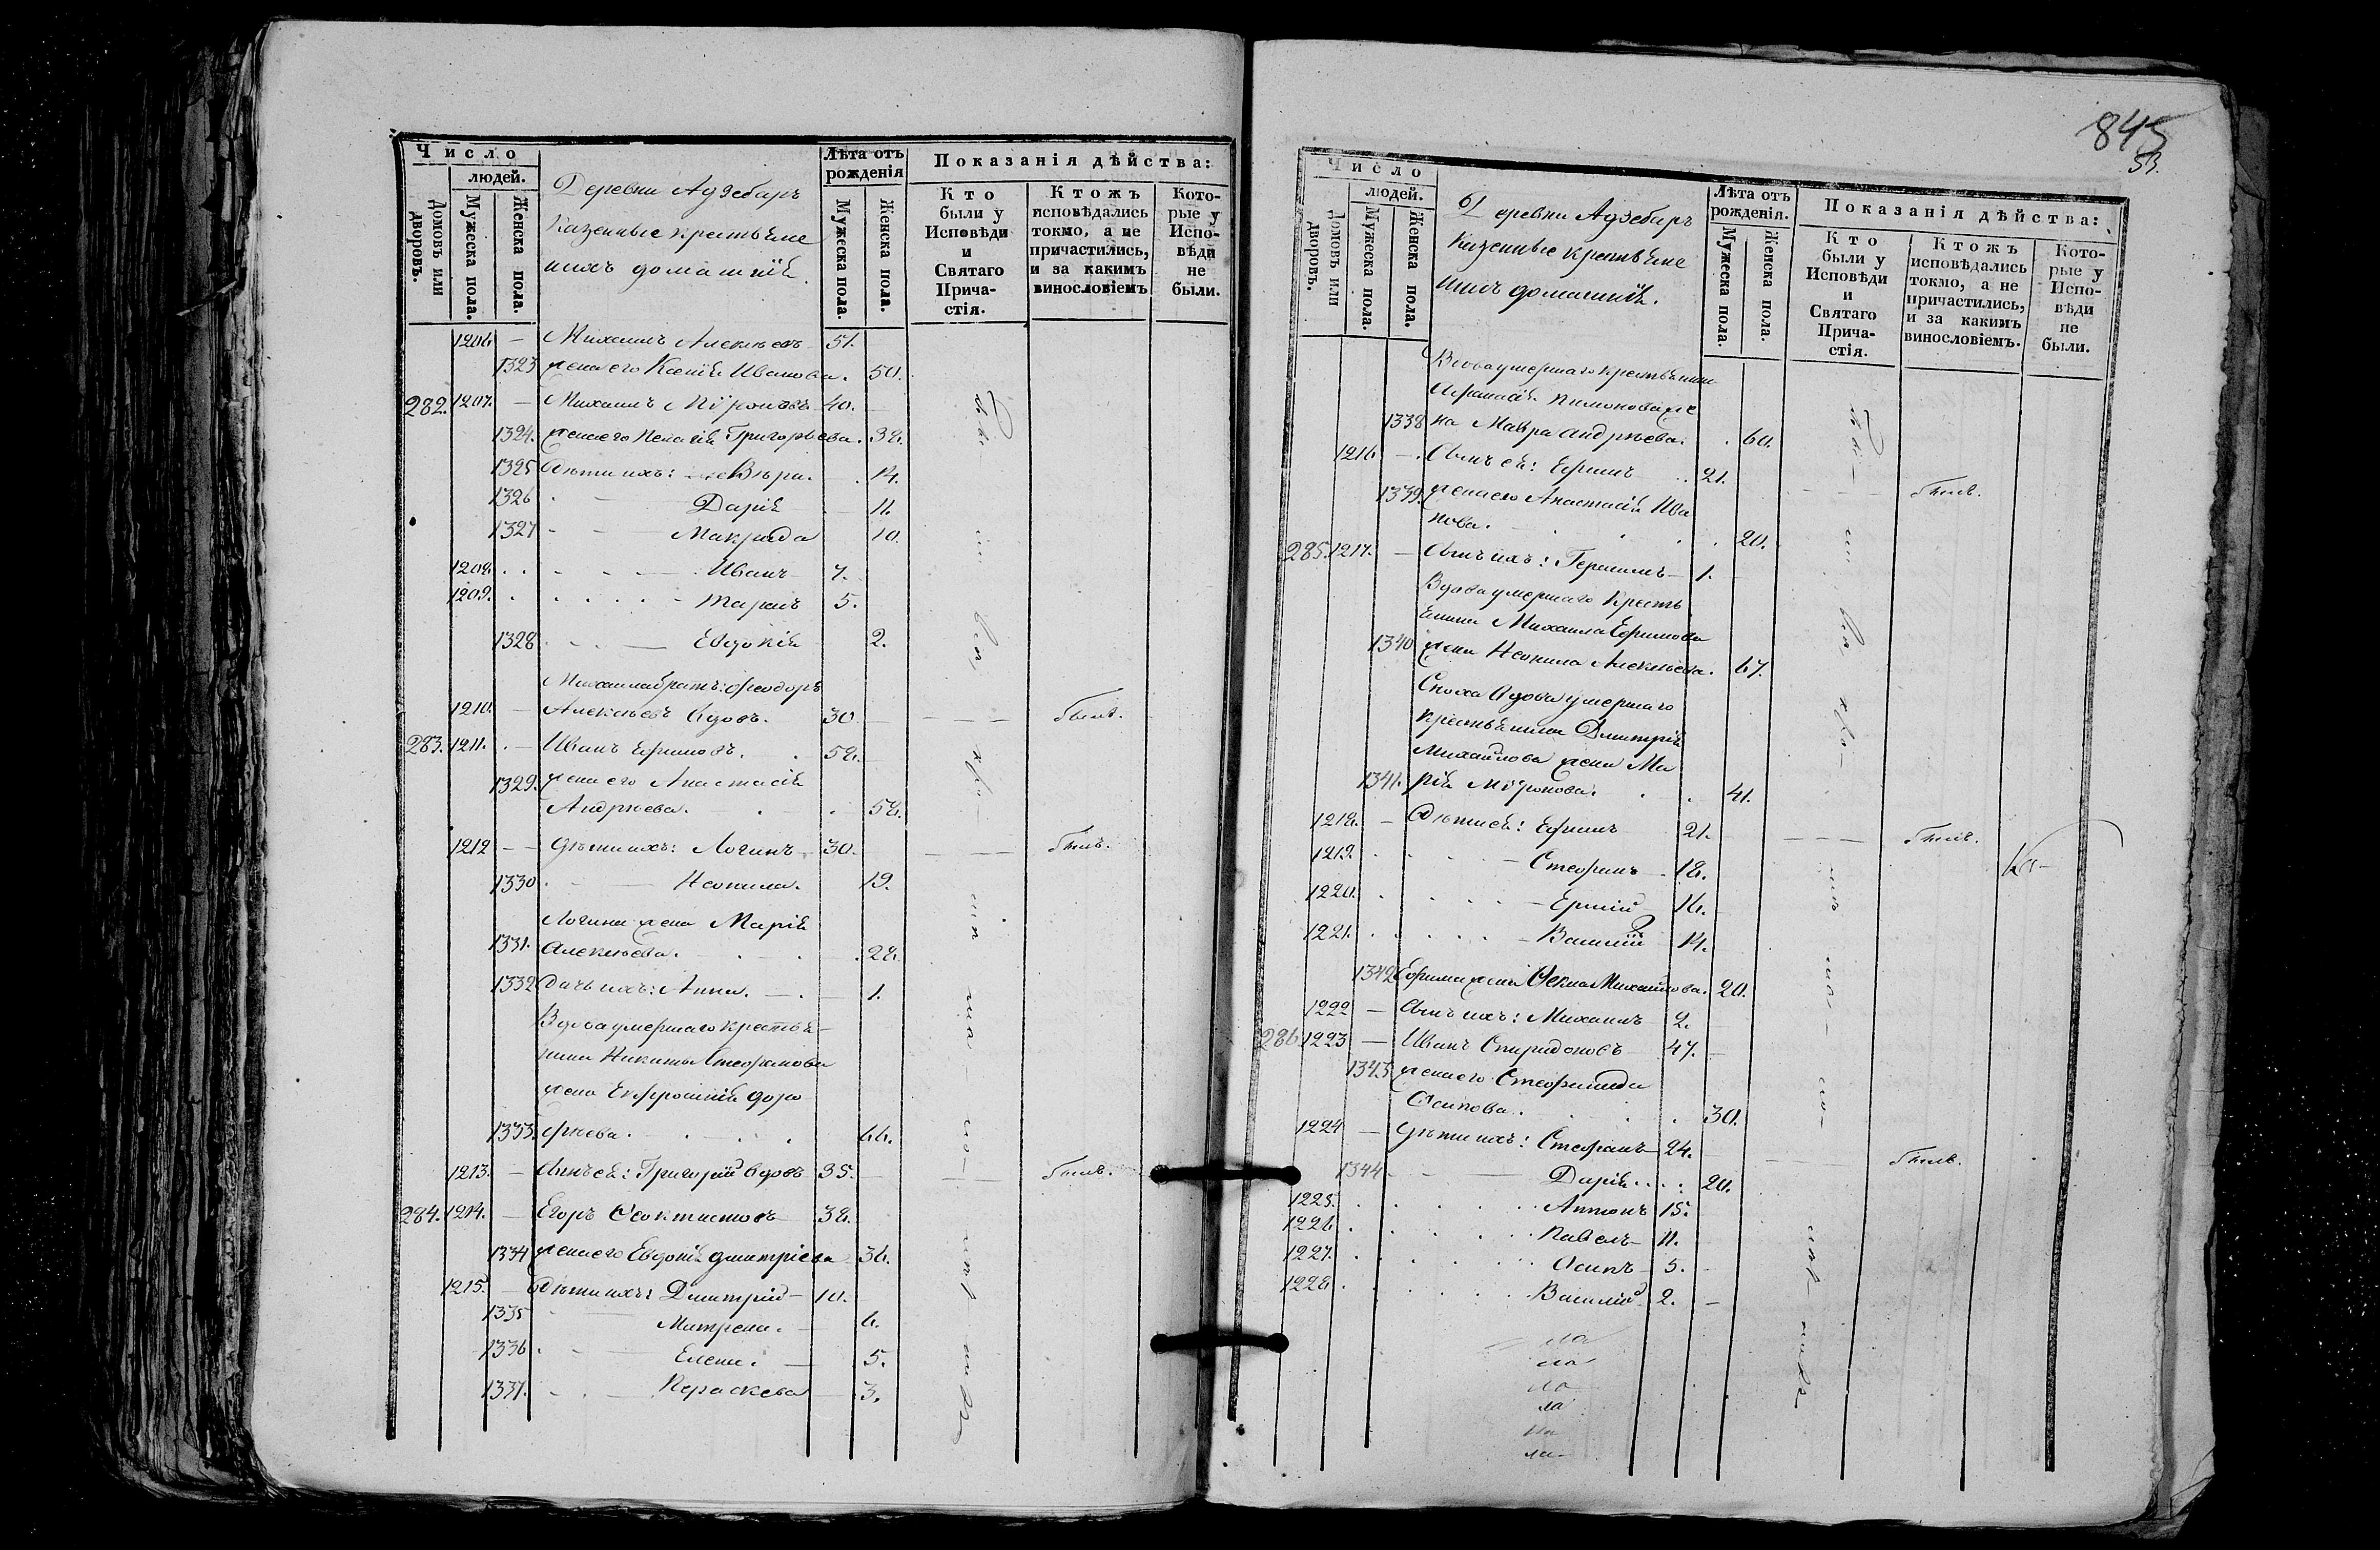 Число
людей.
Домовъ или дворовъ.
Мужеска пола.
Женска пола.
Деревни Аудебаръ
Казенные крестьяне
и ихъ домашнія.
Лѣта отъ рожденія
Мужеска пола.
Женска пола.
Показанія дѣйства:
Кто были у Исповѣди и Святаго Прича-стія.
Ктожъ исповѣдались токмо, а не причастились, и за какимъ винословіемъ
Кото-рые у Испо-вѣди не были.
1206 — Михаилъ Алексѣевъ 51.
1323 жена его Ксенія Иванова. 50.
282. 1207. — Михаилъ Мироновъ 40.
1324. жена его Пелагія Григорьева. 38.
1325 Дѣти ихъ: Вѣра. 14.
1326 Дарія 11.
1327 Макрида 10.
1208. Иванъ 7.
1209. Тарасъ 5.
1328 Евдокія 2.
Михаила братъ: Феодоръ
1210. — Алексѣевъ вдовъ. 30. бывъ.
283. 1211. — Иванъ Ефимовъ. 58.
1329. жена его Анастасія
Андрѣева. 58.
1212 — Дѣти ихъ: Логинъ 30. бывъ.
1330 Неонила. 19.
Логина жена Марія
1331. Алексѣева. 28.
1332 Дочь ихъ: Анна. 1.
Вдова умершаго крестья-
нина Никиты Стефанова
жена Евфросинія Доро
1333. фѣева. 66.
1213. — Сынъ ея: Григорій вдовъ 35. бывъ.
284. 1214. — Егоръ Феоктистовъ 38.
1334 жена его Евдокія Дмитріева 36.
1215. — Дѣти ихъ: Дмитрій 10.
1335 Матрена. 6.
1336 Елена. 5.
1337. Параскева 3.
845
53.
Число
людей.
Домовъ или дворовъ.
Мужеска пола.
Женска пола.
Деревни Аудебаръ
Казенные крестьяне
и ихъ домашнія.
Лѣта отъ рожденія.
Мужеска пола.
Женска пола.
Показанія дѣйства:
Кто были у Исповѣди и Святаго Прича-стія.
Ктожъ исповѣдались токмо, а не причастились, и за какимъ винословіемъ.
Кото-рые у Испо-вѣди не были.
Вдова умершаго крестьянина
Афанасія Пимонова же
1338 на Мавра Андрѣева. 60.
1216 — Сынъ ея: Ефимъ 21. бывъ.
1339. жена его Анастасія Ива
нова. 20.
285. 1217. — Сынъ ихъ: Герасимъ 1.
Вдова умершаго Кресть
янина Михаила Ефимова
1340 жена Неонила Алексѣева. 67.
Сноха вдова умершаго
крестьянина Дмитрія
Михайлова жена Ма
1341. рія Миронова. 41.
1218. — Дѣти ея: Ефимъ 21. бывъ.
1219. Стефанъ 18.
1220. Ермій 16.
1221. Василій 14.
1342 Ефима жена Фекла Михайлова. 20.
1222 — Сынъ ихъ: Михаилъ 2.
286 1223 — Иванъ Спиридоновъ 47.
1343 жена его Стефанида
Осипова. 30.
1224 — Дѣти ихъ: Стефанъ 24. бывъ.
1344 Дарія 20.
1225. Антонъ 15.
1226 Павелъ 11.
1227. Осипъ 5.
1228 Василій 2.